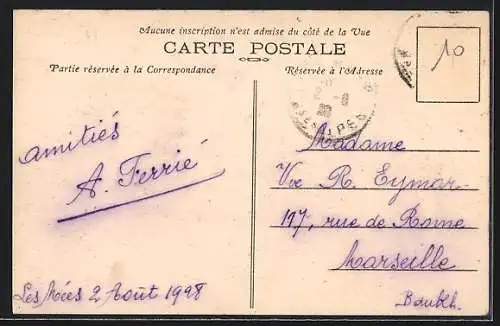 Aucune inscription n'est admise du côté de la Vue
CARTE POSTALE
Partie réservée à la Correspondance
Réservée à l'Adresse
10
amitiés
A. Ferrié
Madame
Vve R. Eymar
197, rue de Rome
Marseille
Les Mées 2 Août 1928